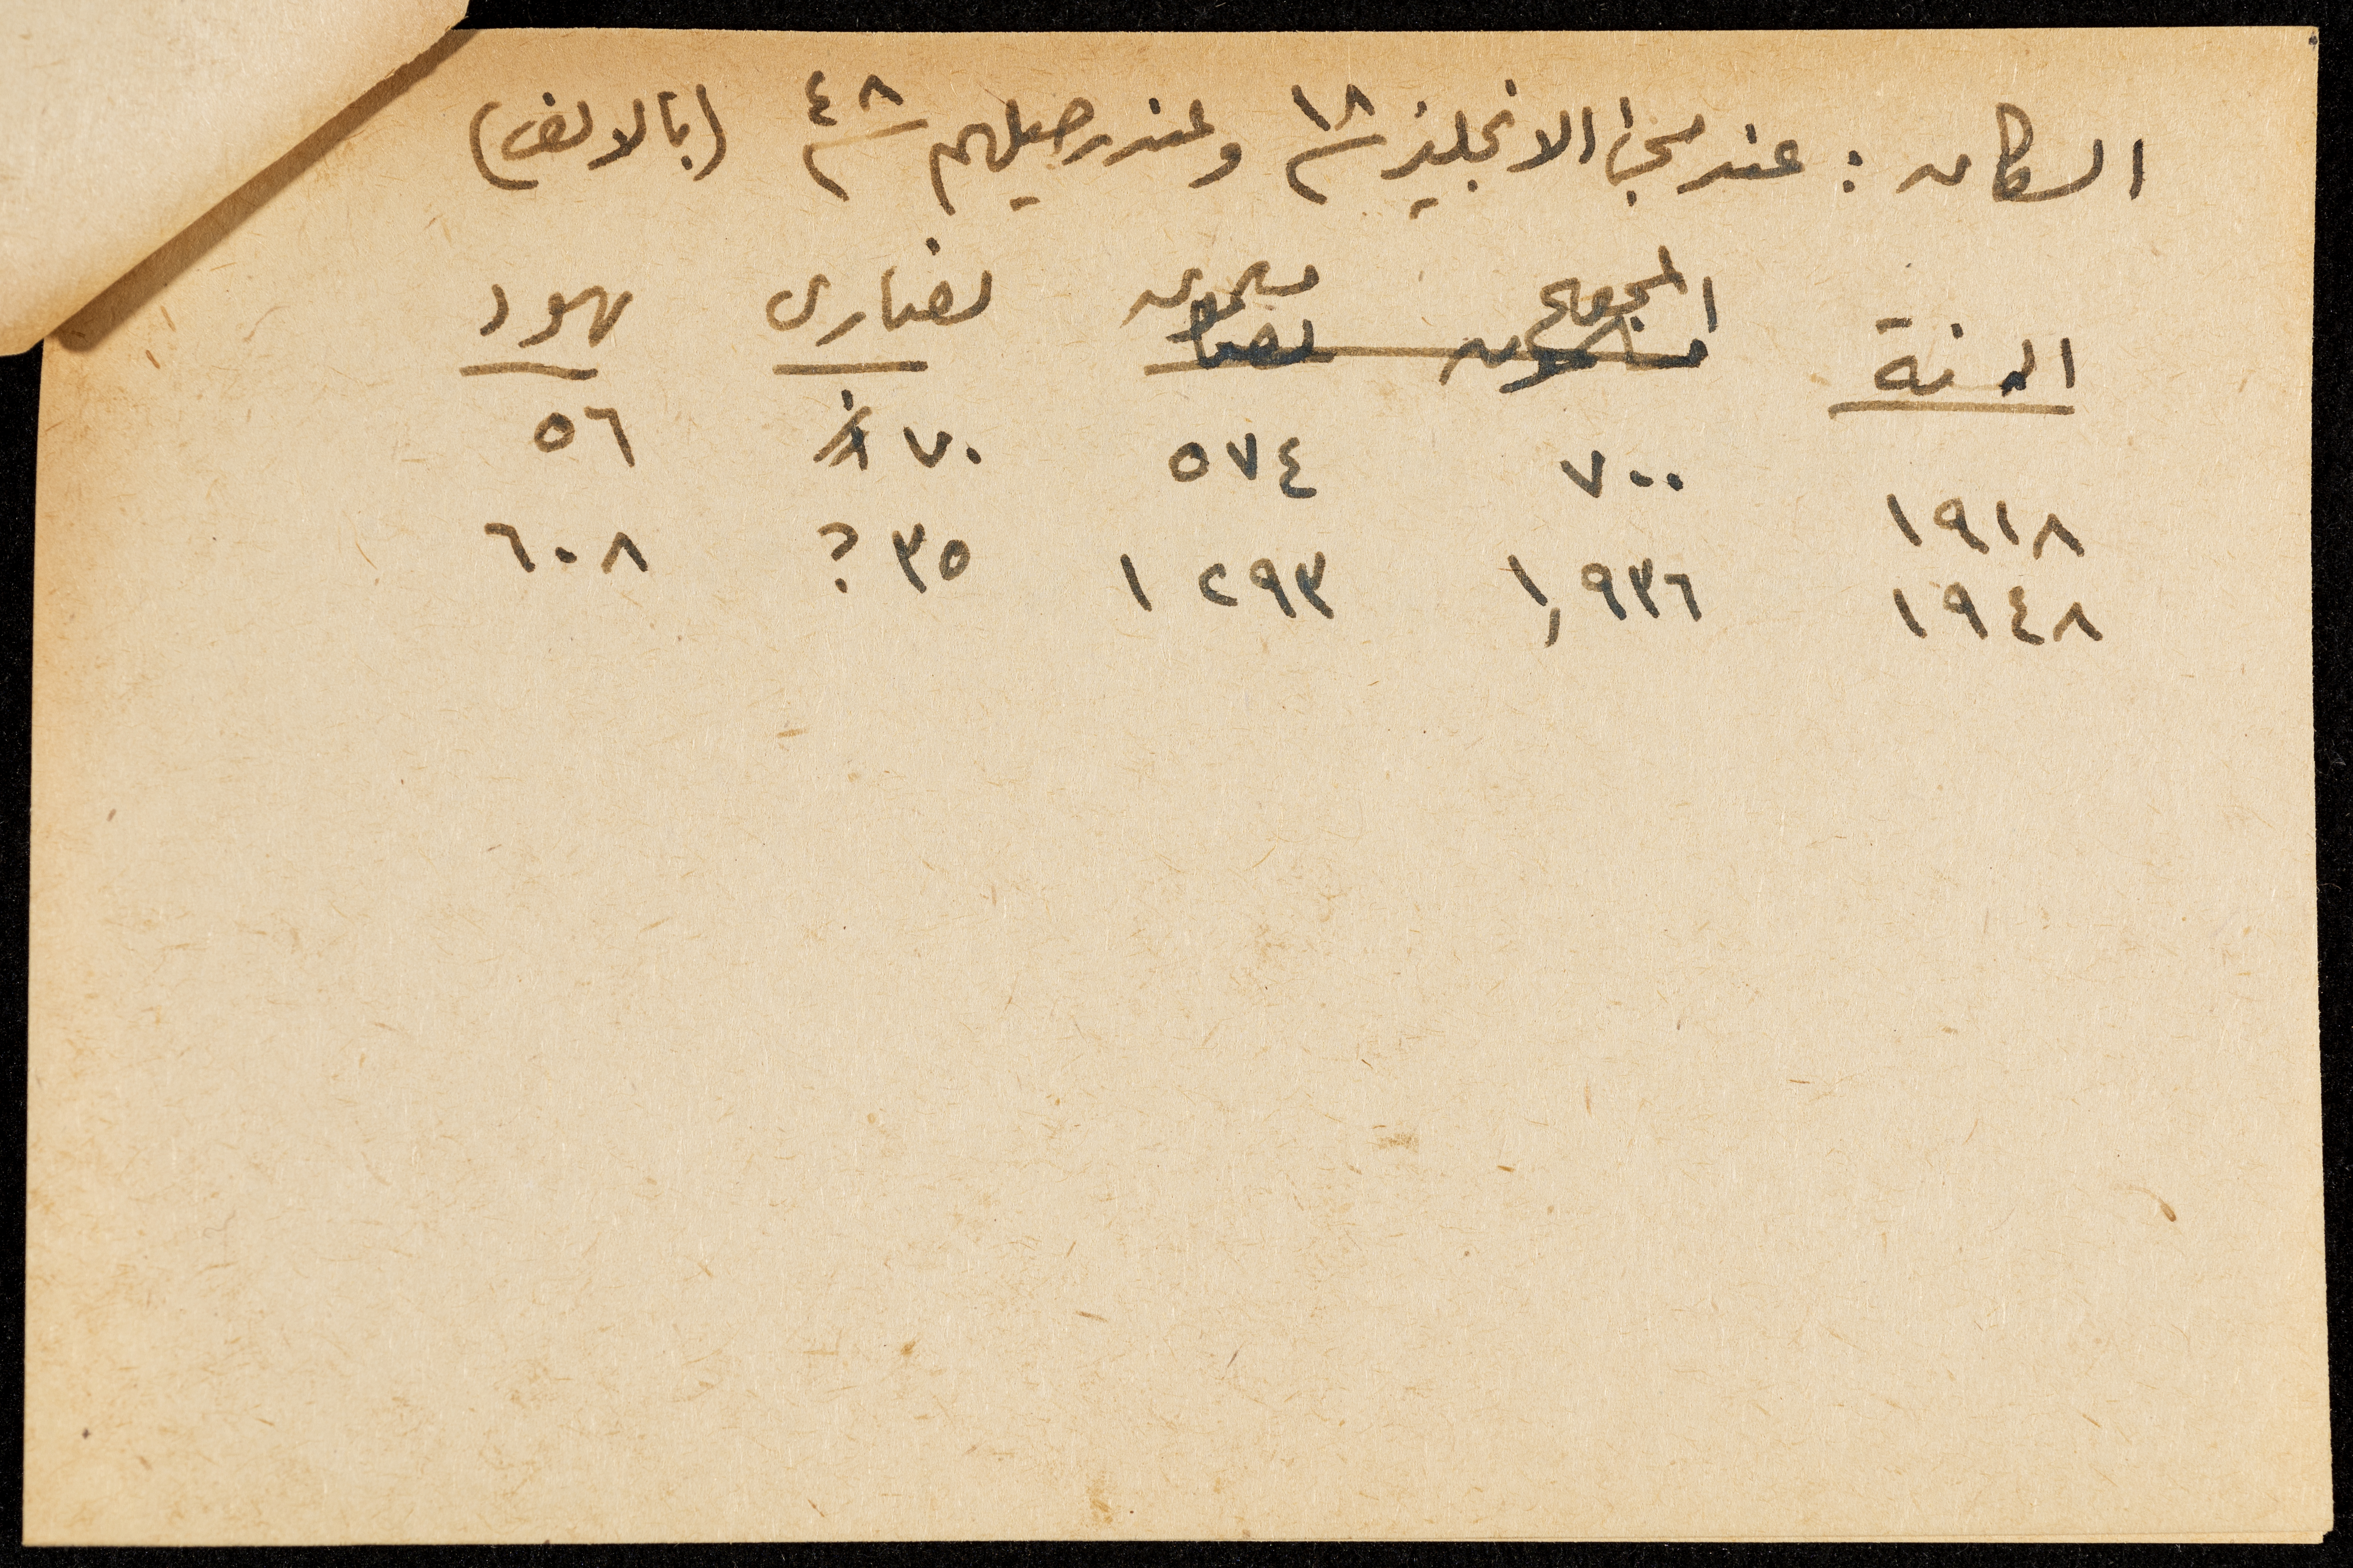 السكان : عند مجئ الانجليز ١٨ وعند رحيلهم ٤٨ (بالالف)
السنة المجموع مسلمون نصارى يهود
١٩١٨ ٧٠٠ ٥٧٤ ٧٠ ٥٦
١٩٤٨ ١,٩٣٦ ١٢٩٣ ٣٥ ? ٦٠٨